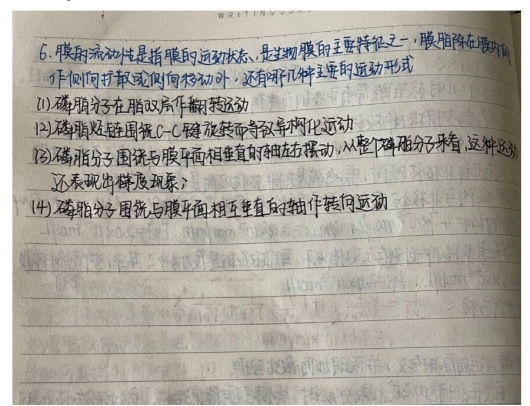 WRITING
6.膜的流动性是指膜的运动状态、是生物膜的主要特征之一,膜脂除在膜内
作侧向扩散或侧向移动外,还有哪几种主要的运动形式
(1)磷脂分子在脂双层作翻转运动
(2)磷脂烃链围绕C-C键旋转而导致异构化运动
(3)磷脂分子围绕与膜平面相垂直的轴左右摆动,从整个磷脂分子来看,这种运动
还表现出梯度现象;
(4)磷脂分子围绕与膜平面相互垂直的轴作转向运动